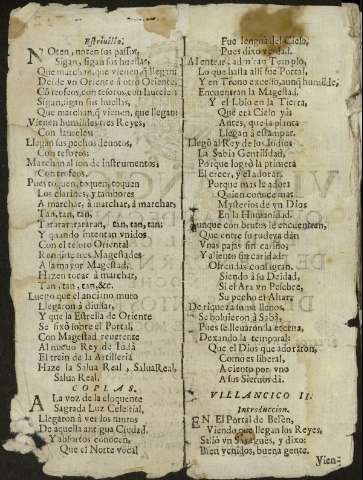 Estrivillo.
NOten, noten sus passos,
Sigan, sigan sus huellas,
Que marchan, que vienen, q̃ llegan
Desde vn Oriente à otro Oriente,
Cõ trofeos, con tesoros, con laureles
Sigan, sigan sus huellas,
Que marchan, q̃ vienen, que llegan
Vienen humildes tres Reyes,
Con laureles
Llegan sus pechos devotos,
Con tesoros:
Marchan al son de instrumentos,
Con trofeos.
Pues toquen, toquen, toquen
Los clarines, y tambores
A marchar, à marchar, à marchar,
Tan, tan, tan,
Tararararararan, tan, tan, tan:
Y quando intentan vnidos
Con el tesoro Oriental
Rendirse tres Magestades
A la mayor Magestad,
Hazen tocar à marchar,
Tan, tan, tan, &c.
Luego que el anciano muro
Llegaron à divisar,
Y que la Estrella de Oriente
Se fixò sobre el Portal,
Con Magestad reverente
Al nuevo Rey de Judà
El tren de la Artilleria
Haze la Salua Real, Salua Real,
Salua Real.
COPLAS.
A La voz de la eloquente
Sagrada Luz Celestial,
Llegaron à ver los muros
De aquella antigua Ciudad.
Y absortos conocen,
Que el Norte vocal
Fue lengua del Cielo,
Pues dixo verdad.
Al entrar, admiran Templo,
Lo que halla alli fue Portal,
Y en Trono excelso, aunq̃ humilde,
Encuentran la Magestad.
Y el Sol en la Tierra,
Què era Cielo yà
Antes, que la planta
Llegàn à estampar.
Llegò al Rey de los Judios
La Sabia Gentilidad,
Porque logrò la primera
El creer, y el adorar.
Porque mas le adore
Quien conoce mas
Mysterios de vn Dios
En la Humanidad.
Aunque con brutos le encuentran,
Que entre su rudeza dàn
Vnas pajas sin cariño,
Y aliento sin caridad:
Ofrendas consagran,
Siendo à su Deidad,
Si el Ara vn Pesebre,
Su pecho el Altar.
De riqueza suma llenos,
Se bolvieron à Sabà,
Pues se llevaròn la eterna,
Dexando la temporal:
Que el Dios que adoraron,
Como es liberal,
A ciento por vno
A sus Siervos dà.
VILLANCICO II.
Introduccion.
EN El Portal de Belèn,
Viendo que llegan los Reyes,
Saliò vn Saragués, y dixo:
Bien venidos, buena gente.
Vien-